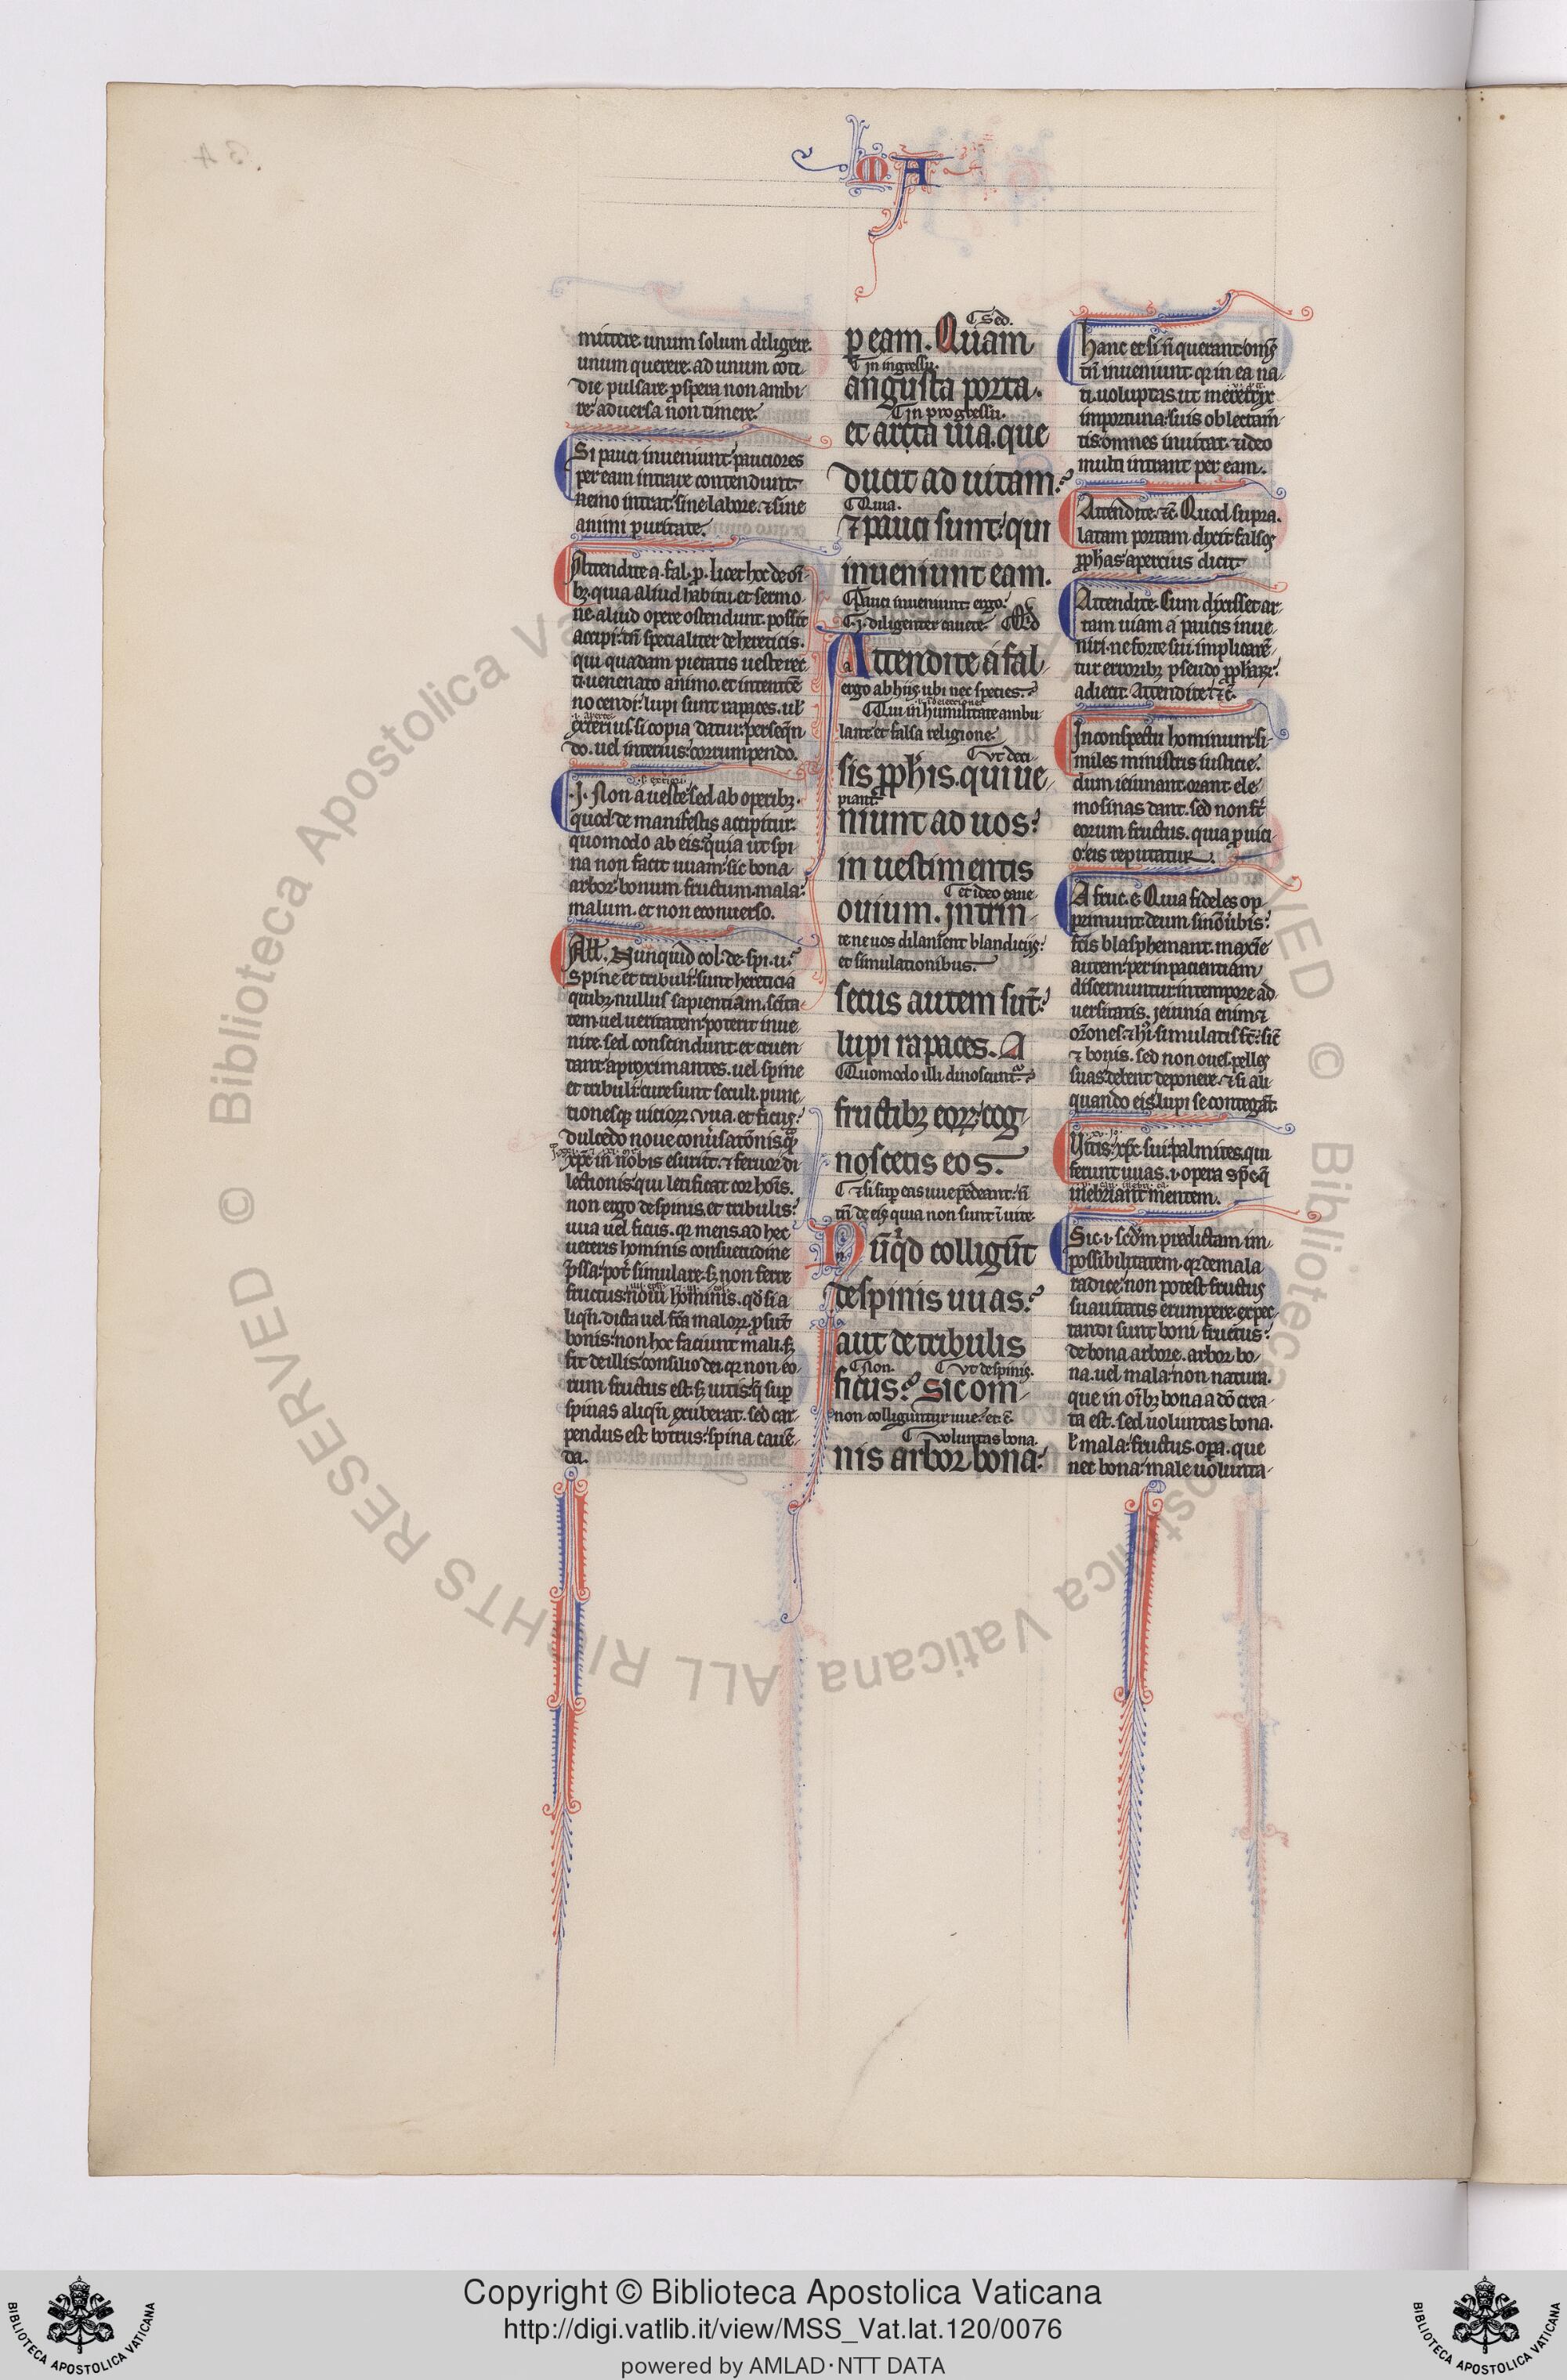 M A
mittere. unum solum diligere.
unum querere. ad unum coti-
die pulsare. ꝓspera non ambi-
re. aduersa non timere.
Si pauci inueniunt. pauciores
per eam intrare contendunt.
nemo intrat. sine labore. ⁊ sine
animi puritate.
Attendite a. fal. ꝓ. licet hoc de oī-
bꝫ. quia aliud habitu. et sermo-
ne. aliud opere ostendunt. possit
accipi. tn̄ specialiter de hereticis.
qui quadam pietatis ueste tec-
ti. uenenato animo. et intentōe
nocendi. lupi sunt rapaces. ul̄
exterius. si copia datur. perseq̄n-
do. uel interius. corrumpendo.
.I. Non a ueste. sed ab operibꝫ.
quod de manifestis accipitur.
quomodo ab eis. quia ut spi-
na non facit uuam. sic bona
arbor. bonum fructum. mala.
malum. et non econuerso.
All. Nunquid col. de. spi. u.
Spine et tribuli. sunt heretici a
quibꝫ nullus sapientiam. scīta-
tem. uel ueritatem. poterit inue-
nire. sed conscindunt. et cruen-
tant. aproximantes. uel spine
et tribuli. cure sunt seculi. punc-
tionesqꝫ uiciorꝝ. vua. et ficus.
dulcedo noue conuersatōnis. q̄
xp̄c in nobis esurit. ⁊ feruor di-
lectionis. qui letificat cor hoīs.
non ergo de spinis. et tribulis.
uua uel ficus. qꝛ mens. ad hec
ueteris hominis consuetudine
p̄ssa. pot̄ simulare. sꝫ non ferre
fructus. noui hominis. qd̄ si a-
liqn̄. dicta uel fc̄a malorꝝ. ꝓsūt
bonis. non hoc faciunt mali. sꝫ
fit de illis. consilio dei. qꝛ non eo-
rum fructus est. sꝫ uitis. q̄ sup̄
spinas aliqn̄ exuberat. sed car-
pendus est botrus. spina cauē-
da.
Sed.
ꝑ eam. Quam
in ingressu.
angusta porta.
in progressu.
et arcta uia. que
ducit ad uitam.
Quia.
⁊ pauci sunt. qui
inueniunt eam.
Pauci inueniunt. ergo.
.i. diligenter cauete.
Attendite a fal-
ergo ab hiis. ubi nec species.
Qui in humilitate ambu-
lant. et falsa religione.
Vt deci-
sis ꝓph̄is. qui ue-
piant.
niunt ad uos.
in uestimentis
et ideo caue-
ouium. intrin-
te ne uos dilanient blandiciis.
et simulationibus.
secus autem sūt.
lupi rapaces. A
Quomodo illi dinoscunt̄.
fructibꝫ eorꝝ. cog-
noscetis eos.
⁊ si sup̄ eas uue pēdeant. n̄
tn̄ de eis. quia non sunt ī uite.
Nūq̇d colligūt
de spinis uuas.
aut de tribulis
Non. Vt de spinis.
ficus. Sic om-
non colliguntur uue. etc̄.
voluntas bona.
nis arbor bona.
hanc et si n̄ querant. om̄s
tn̄ inueniunt. qꝛ in ea na-
ti. uoluptas. ut meretrix
importuna. suis oblectam̄-
tis. omnes inuitat. ⁊ ideo
multi intrant per eam.
Attendite. ⁊c̄. Quod supra.
latam portam dixit. falsos
ꝓphas. apertius dicit.
Attendite. Cum dixisset ar-
tam uiam a paucis inue-
niri. ne forte sui implicarē-
tur erroribꝫ pseudo ꝓpharꝝ.
adiecit. Attendite. ⁊c̄.
In conspectu hominum. si-
miles ministris iusticie.
dum ieiunant. orant. ele-
mosinas dant. sed non st̄
eorum fructus. quia ꝓ uici-
o. eis reputatur.
A fruc. e. Quia fideles op-
primunt. deum si nō uerbis.
fc̄is blasphemant. maxīe
autem. per inpacientiam
discernuntur. in tempore ad-
uersitatis. ieiunia enim. ⁊
orōnes. ⁊ h̄ simulatis st̄. sic̄
⁊ bonis. sed non oues. pelles
suas debent deponere. ⁊ si ali-
quando eis. lupi se contegāt.
Vitis. xp̄c. sui palmites. qui
ferunt uuas. i. opera sp̄c. q̄
inebriant mentem.
Sic. i. scd̄m predictam im-
possibilitatem. qꝛ de mala
radice. non potest. fructus
suauitatis erumpere. expec-
tandi sunt boni fructus.
de bona arbore. arbor bo-
na. uel mala. non natura.
que in oībꝫ bona a dō crea-
ta est. sed uoluntas bona.
ul̄ mala. fructus. opa. que
nec bona. male uolunta-
Copyright © Biblioteca Apostolica Vaticana
http://digi.vatlib.it/view/MSS_Vat.lat.120/0076
powered by AMLAD·NTT DATA
BIBLIOTECA APOSTOLICA VATICANA
BIBLIOTECA APOSTOLICA VATICANA
© Biblioteca Apostolica Vaticana ALL RIGHTS RESERVED